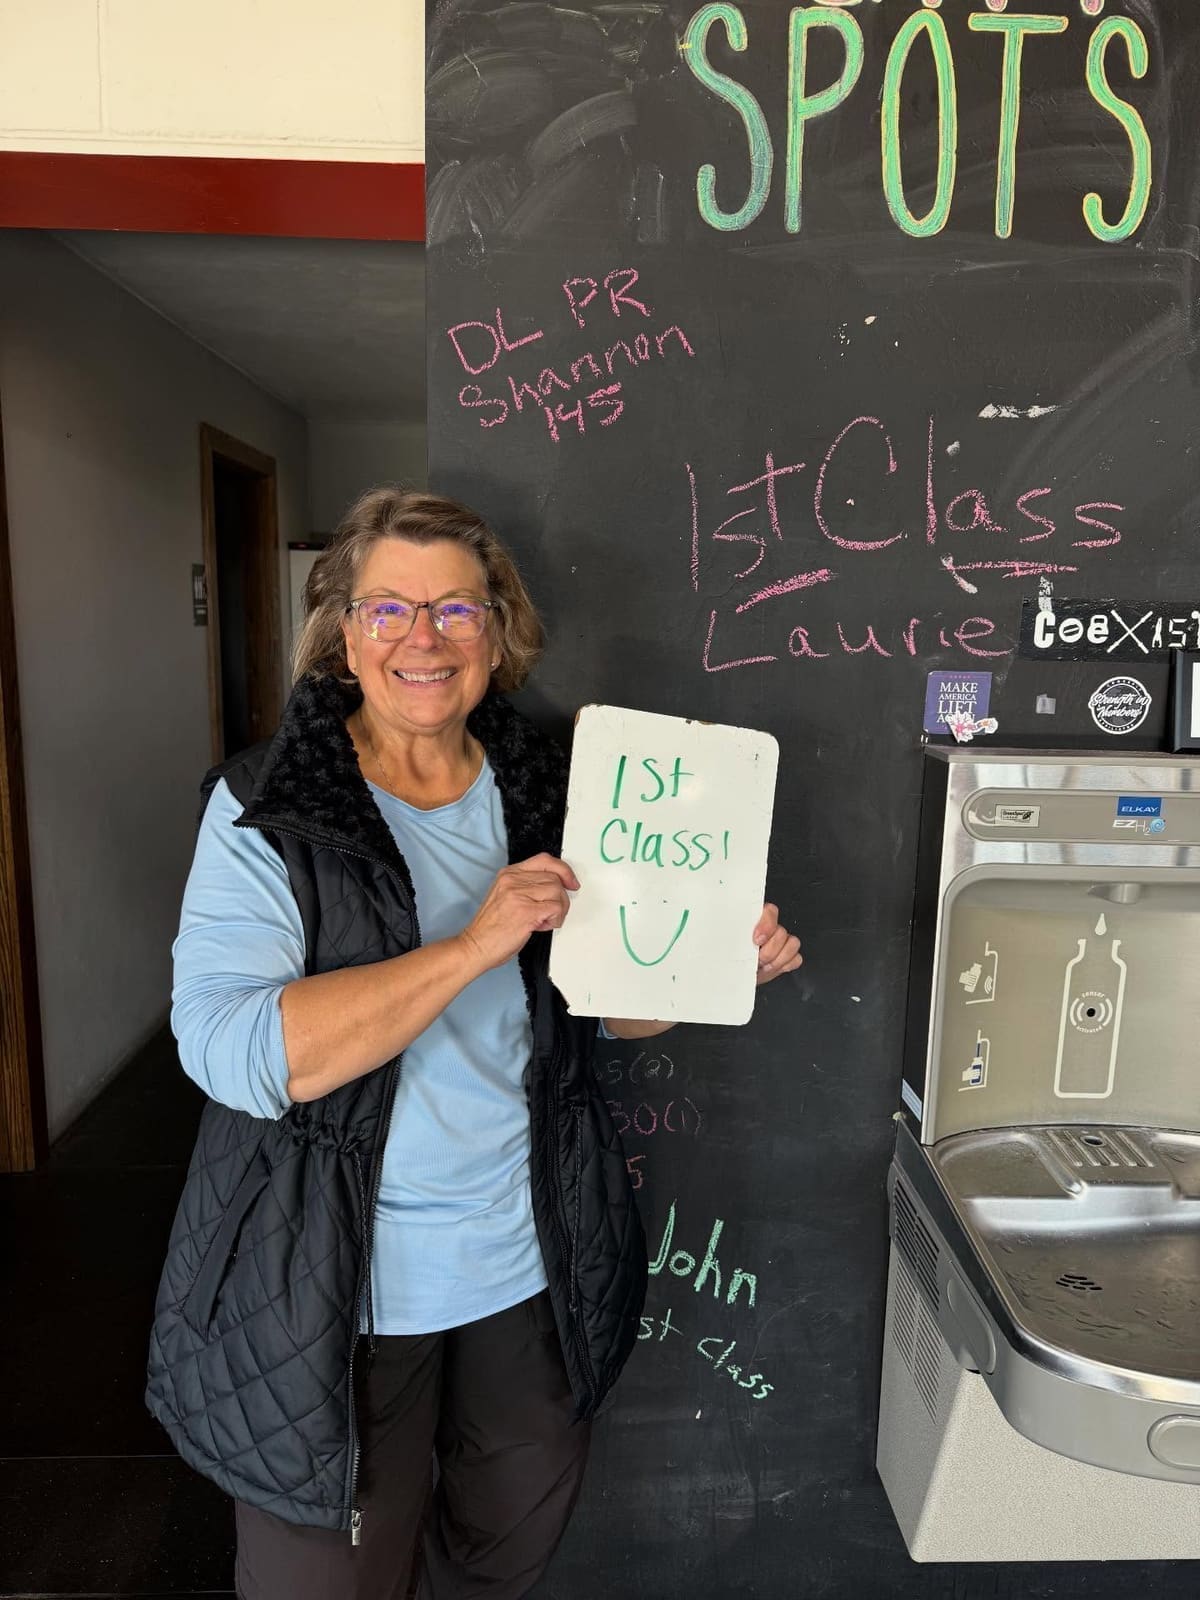 SPOTS
DL PR
Shannon
145
1st Class
Laurie
COEXIST
MAKE
AMERICA
LIFT
AGAIN
Strength in
Numbers
1st
Class!
ELKAY
EZH2O
sensor
activated
5(2)
30(1)
5
John
st Class